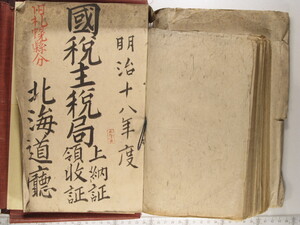 明治十八年度
國税主税局
上納証
領收証
北海道廳